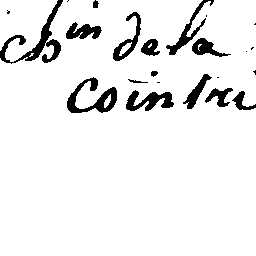 ch^in de la
Cointri